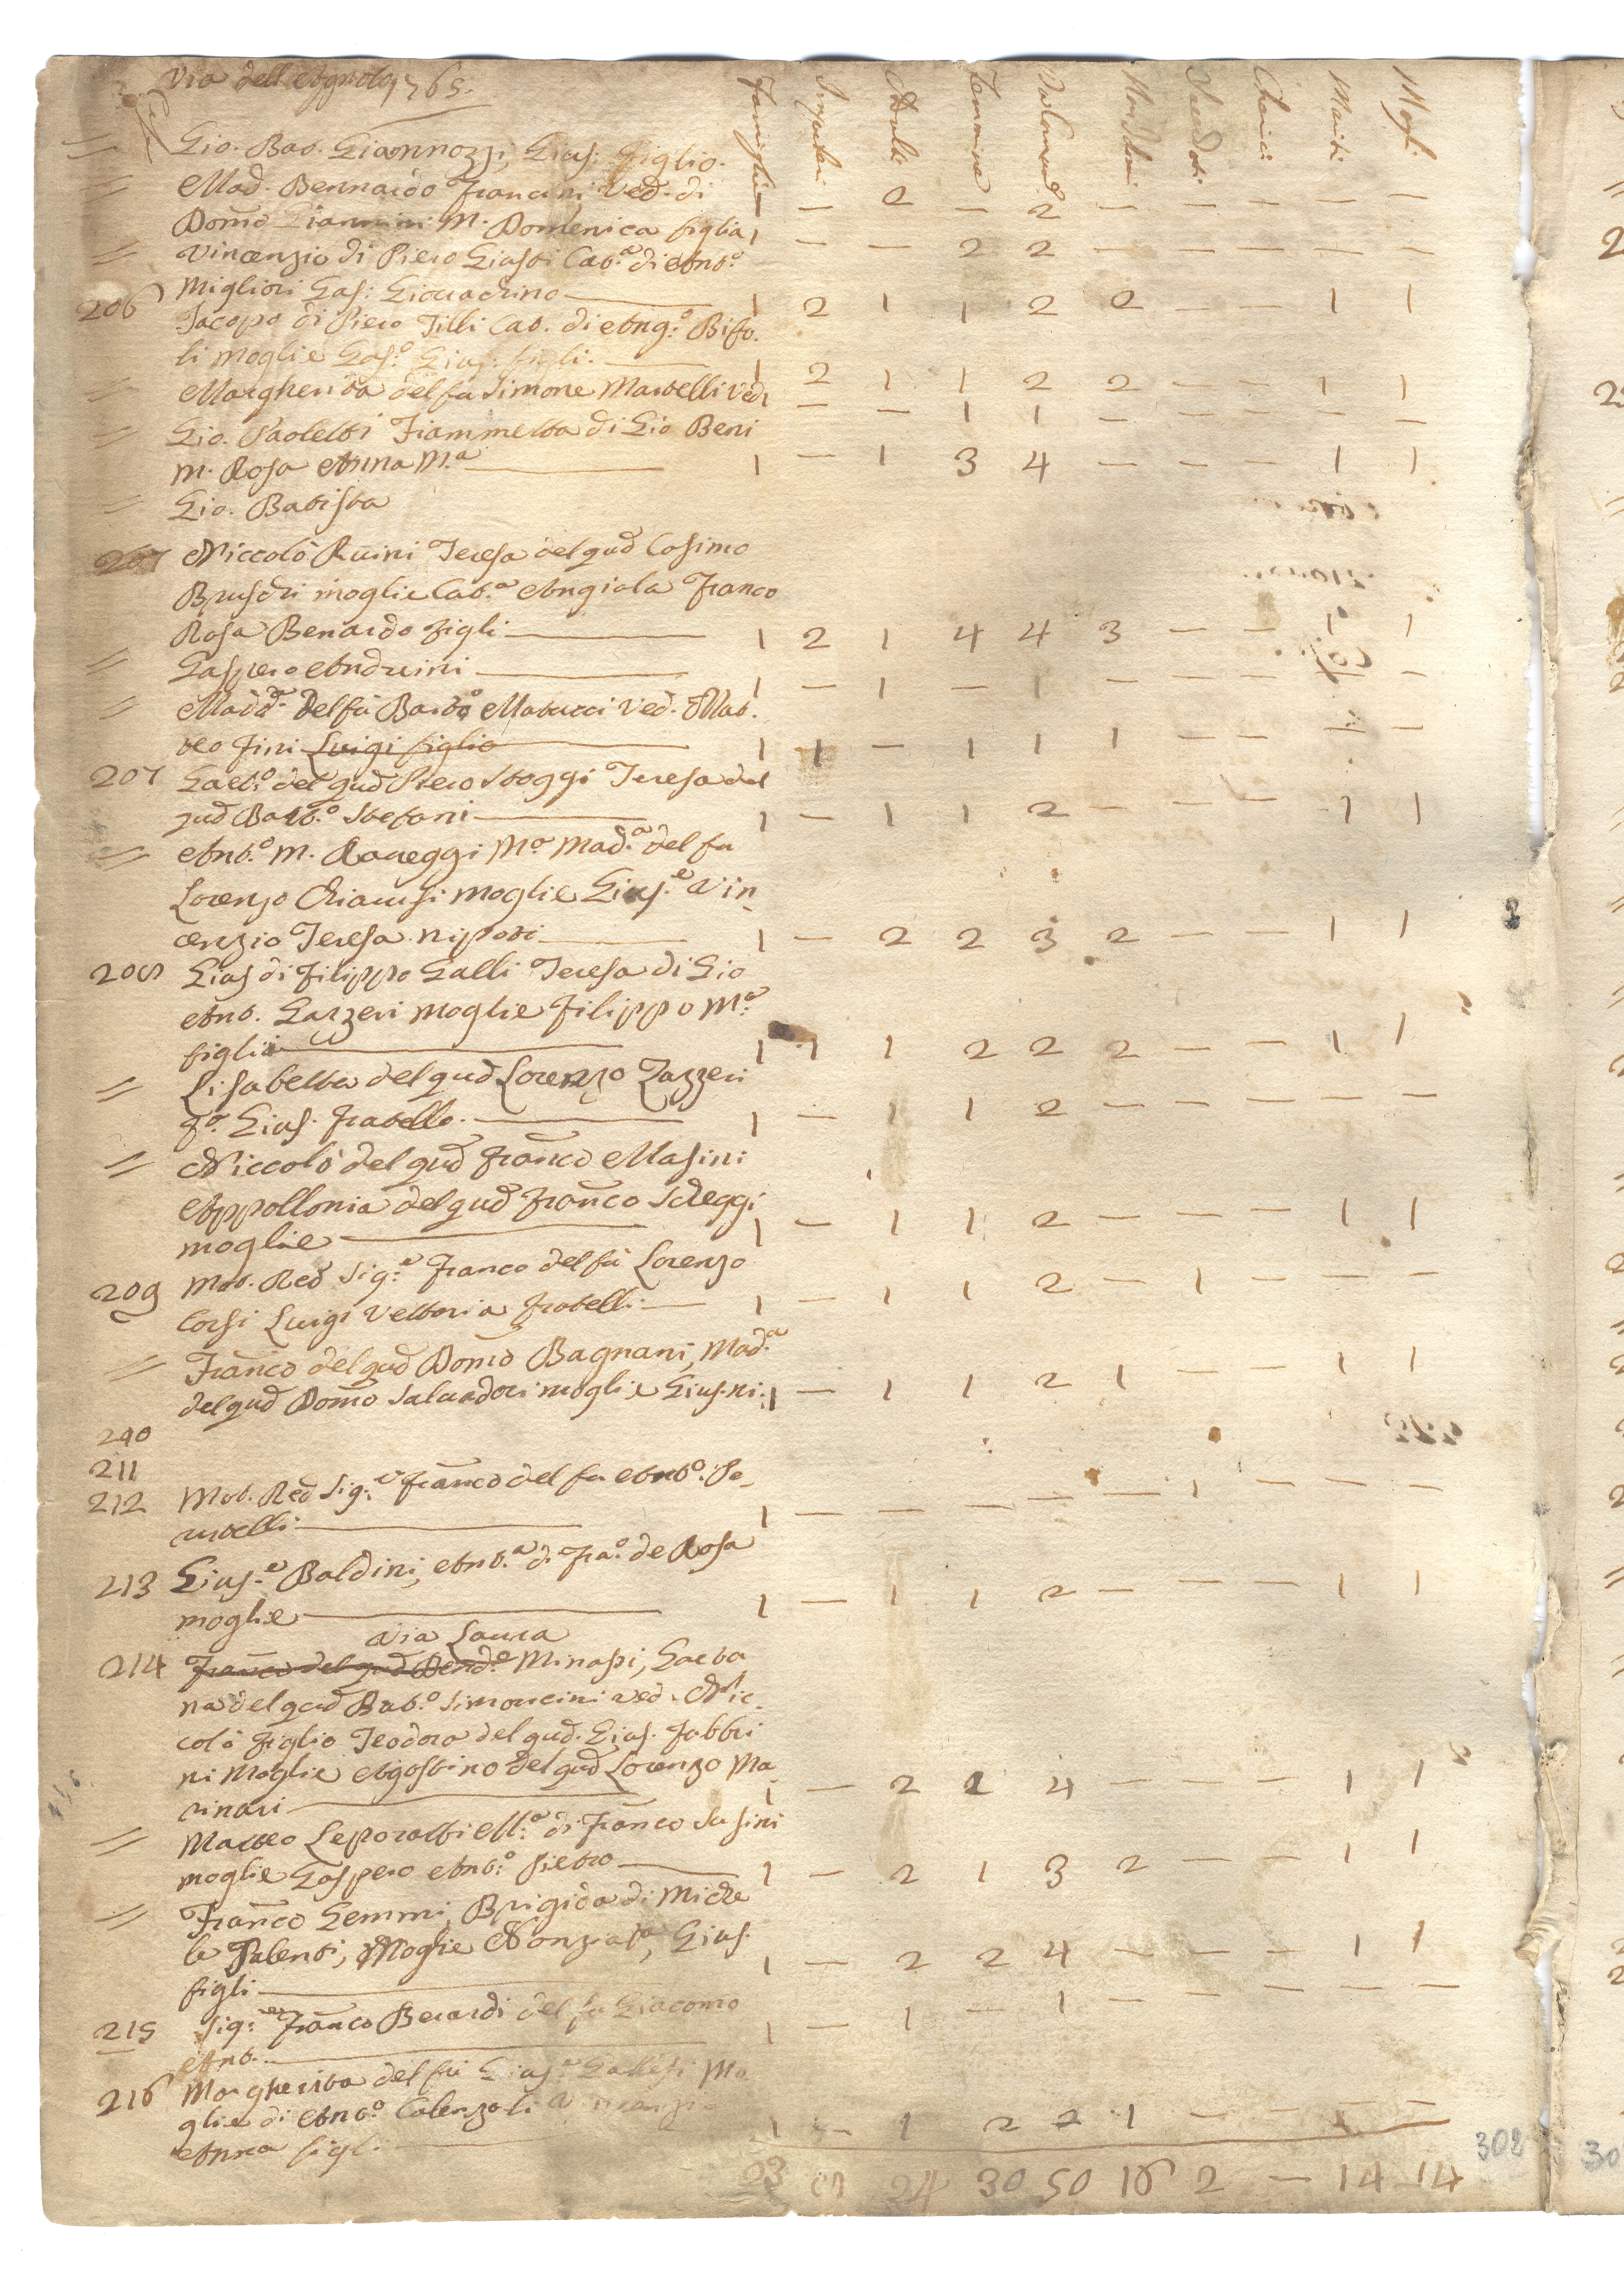 Via dell Agnolo 1765.
Case Famiglie Impuberi Adulti Femmine Mariti Mogli
= Gio. Bat. Giannozzi, Gius: figlio.
= Mad. Bennardo Francini Ved. di — 2 — 2 — — — — — —
Dom̃o Giannini M. Domenica figlia 1 — — 2 2 — — — — — —
= Vincenzio di Piero Giusti Cat.ª di Ant.º
Migliori Gas: Giovachino 1 2 1 1 2 2 — — 1 1
206 Jacopo di Piero Filli Cat. di Ang.º Bifo.
li moglie Gas.º Gius: figli. 1 2 1 1 2 2 — — 1 1
= Margherita del fu Simone Martelli Ved. 1 — — 1 1 — — — — —
= Gio. Paoletti Fiammetta di Gio Beni
M. Rosa Anna M.ª 1 — 1 3 4 — — — 1 1
= Gio. Batista
207 Niccolò Ruini Teresa del qud̃ Cosimo
Bruschi moglie Cat.ª Angiola Franco
Rosa Benardo figli 1 2 1 4 4 3 — — 1 1
= Gaspero Anduini 1 — 1 — 1 — — — — —
= Madd.ª del fù Barto Matucci Ved. Mat.
teo Fini Luigi figlio 1 1 — 1 1 1 — — — —
207 Gaet.º del qud̃ Piero Stoggi Teresa del
qud̃ Bart.º Stefani 1 — 1 1 2 — — — 1 1
= Ant.º M. Raveggi M.ª Mad.ª del fu
Lorenzo Chiarusi moglie Gius.e Vin
cenzio Teresa nipoti 1 — 2 2 3 2 — — 1 1
208 Gius di Filippo Galli Teresa di Gio
Ant. Gazzeri moglie Filippo M.ª
figlia 1 1 1 2 2 2 — — 1 1
= Lisabetta del qud̃ Lorenzo Zazzeri
Gius. fratello. 1 — 1 1 2 — — — — —
= Niccolò del qud̃ Franco Masini
Appollonia del qud̃ Franco Scheggi
moglie 1 — 1 1 2 — — — 1 1
209 Mot. Red Sig.e Franco del fù Lorenzo
Corsi Luigi Vettoria fratelli 1 — 1 1 2 — 1 — — —
= Franco del qud̃ Dom̃o Bagnani, Mad.ª
del qud̃ Dom̃o Salvadori moglie Gius. ni: 1 — 1 1 2 1 — — 1 1
210
211
212 Mot. Red Sig.e Franco del fu Ant.º Pe
rutelli 1 — — — — — 1 — — —
213 Gius.e Baldini, Ant.ª di Fra.º de Rosa
moglie 1 — 1 1 2 — — — 1 1
Via Laura
214 Franco del qud̃ Bend.º Minassi, Gaeta
na del qud̃ Bat.º Simoncini ved. Nic
colò figlio Teodora del qud̃. Gius. Fabbri
ni Moglie Agostino del qud̃ Lorenzo Ma
rinari 1 — 2 2 4 — — — 1 1
= Matteo Leporatti M.ª di Franco Susini
moglie Gaspero Ant.º Pietro 1 — 2 1 3 2 — — 1 1
= Franco Gemmi, Brigida di Miche
le Palenti, Moglie Nonziata, Gius.
figli 1 — 2 2 4 — — — 1 1
215 Sig.er Franco Berardi del fu Giacomo
Ant. 1 — 1 — 1 — — — — —
216 Margherita del fù Gius.e Galesi Mo
glie di Ant.º Calenzoli Vincenzio
Anna figli 1 — 1 2 2 1 — — — —
23 8 24 30 50 16 2 — 14 14
302